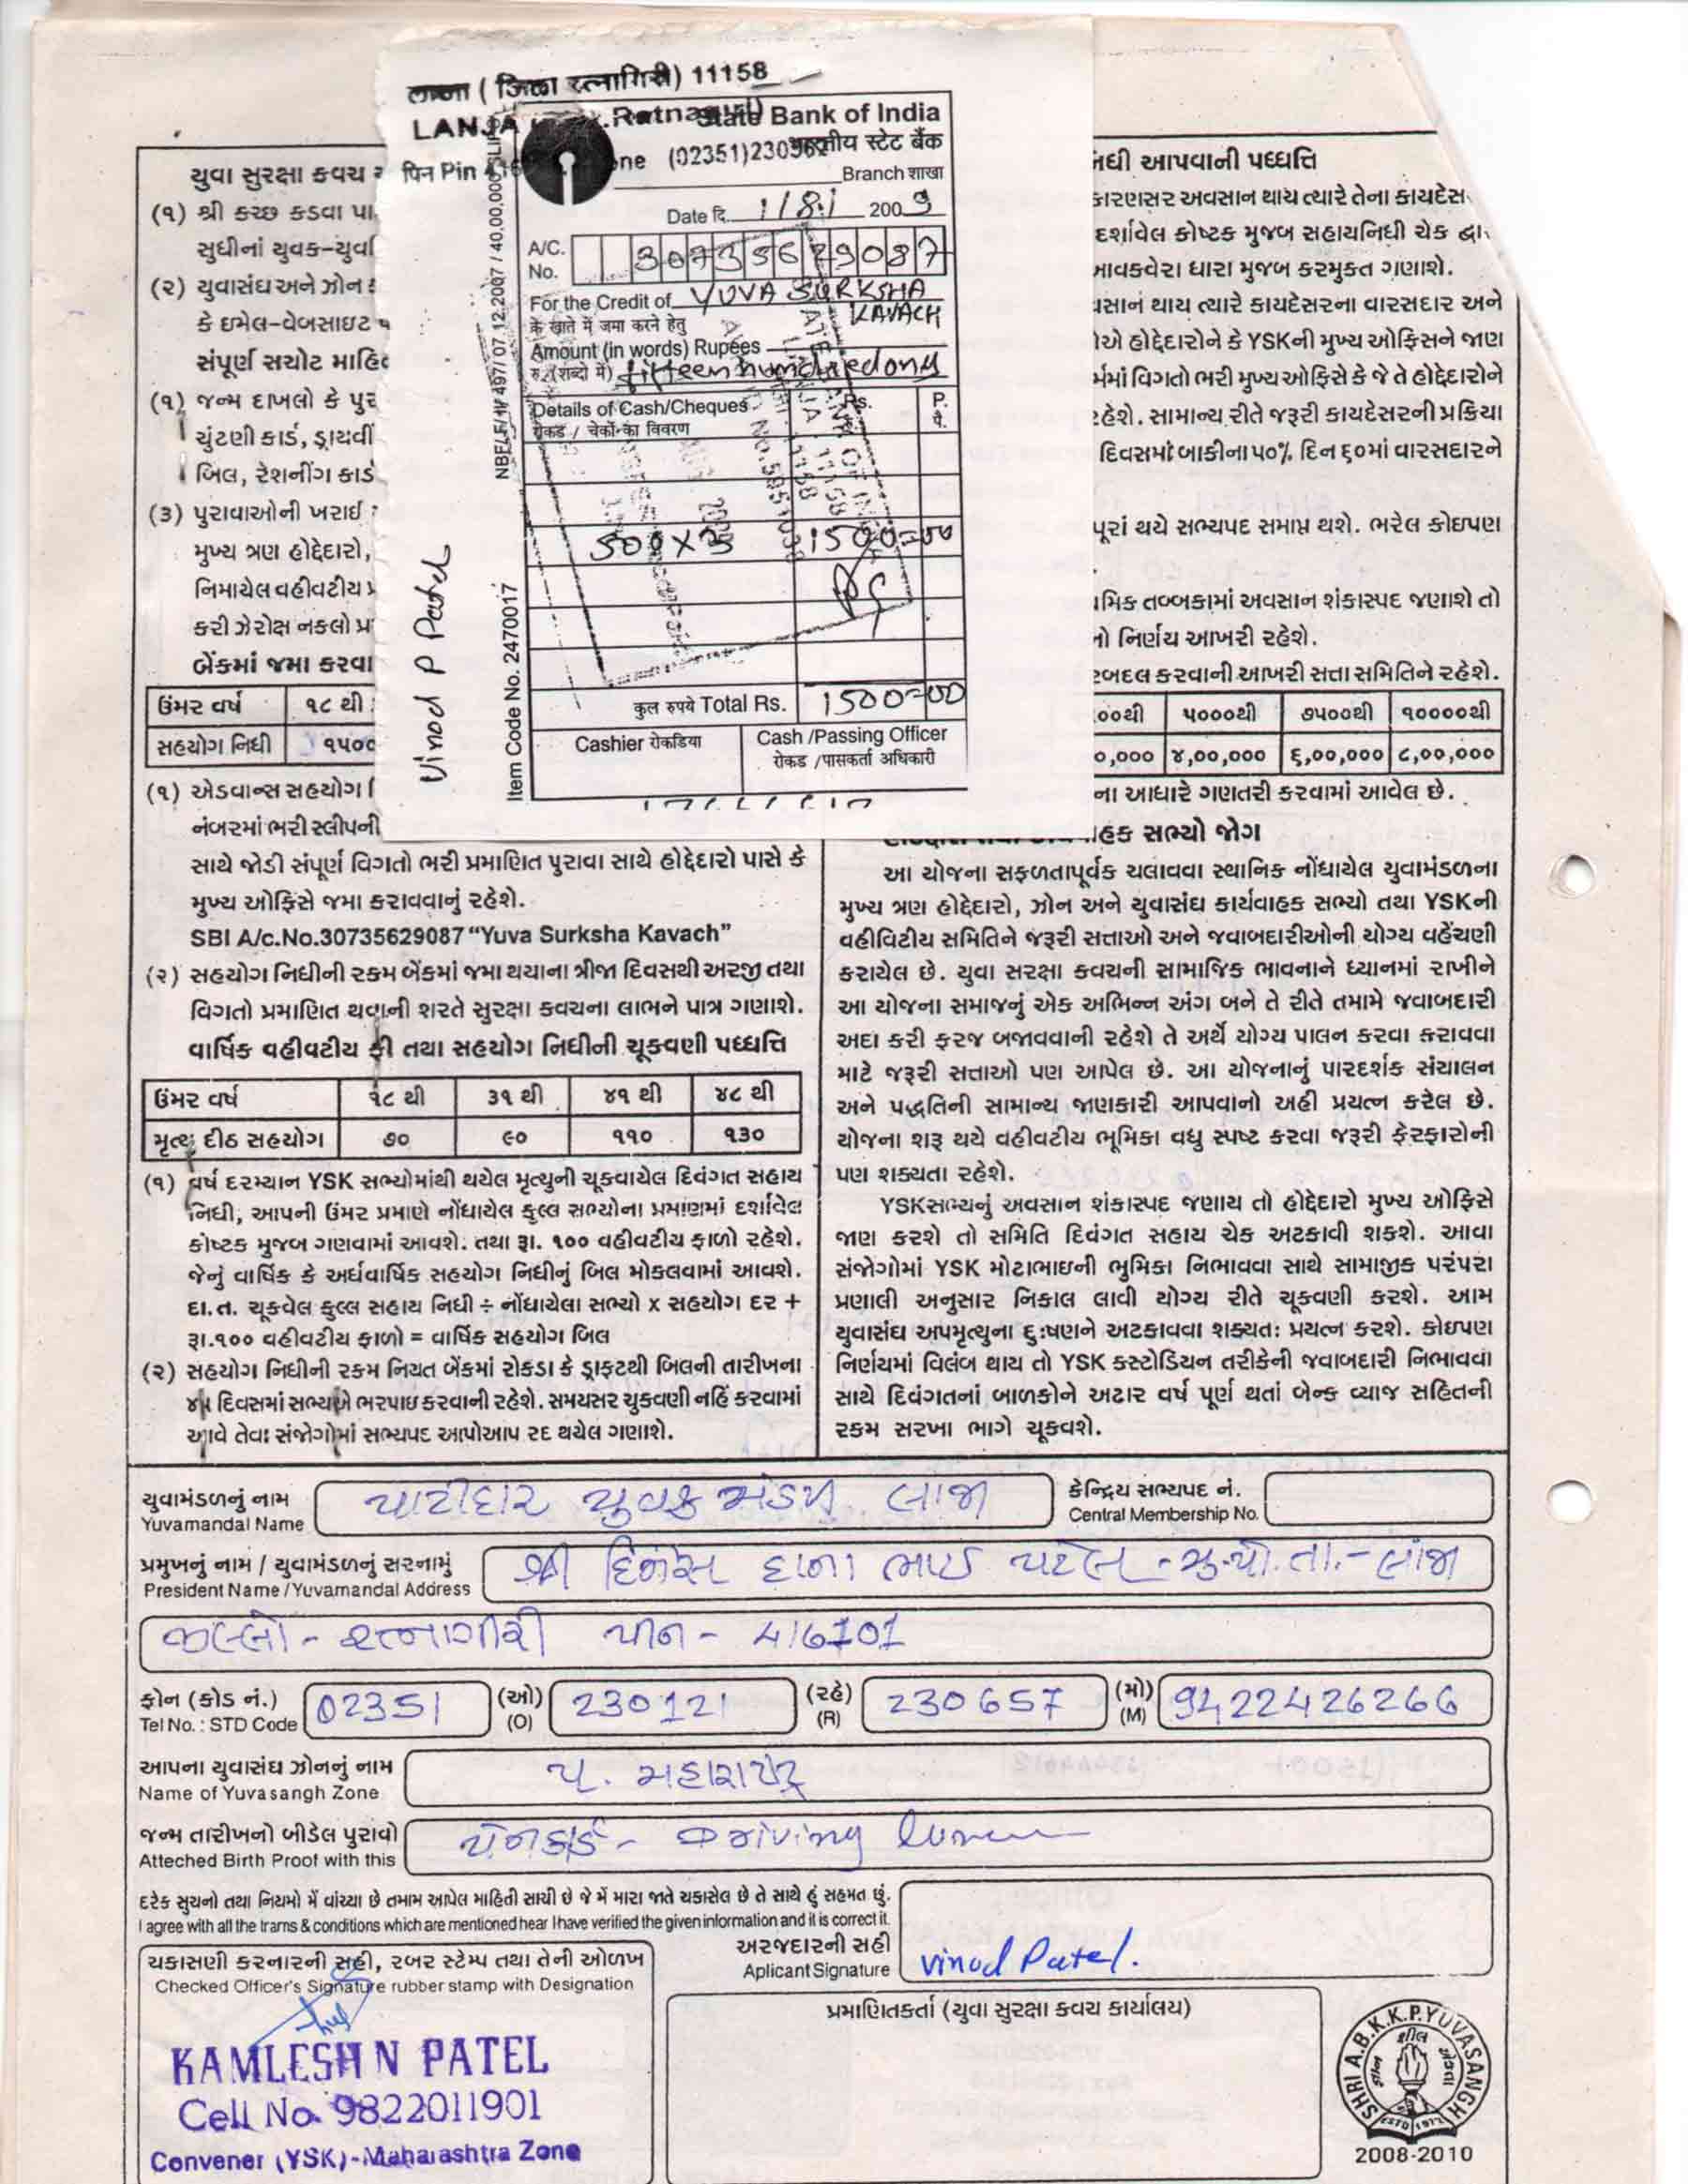 लांजा ( जिला रत्नागिरी) 11158
LANJA
State Bank of India
भारतीय स्टेट बैंक
पिन Pin
(02351)230962
Branch शाखा
Date दि. 1/8/ 2009
A/C. No. 30735629087
For the Credit of YUVA SURKSHA KAVACH
के खाते में जमा करने हेतु
Amount (in words) Rupees
रु. (शब्दो में) fifteen hundred only
Details of Cash/Cheques Rs. P.
रोकड / चेकों का विवरण पै.
500 X 3 1500=00
कुल रुपये Total Rs. 1500=00
Cashier रोकडिया
Cash /Passing Officer
रोकड /पासकर्ता अधिकारी
Item Code No. 2470017
Vinod P Patel
યુવા સુરક્ષા કવચ
(૧) શ્રી કચ્છ કડવા પા
સુધીનાં યુવક-યુવ
(૨) યુવાસંઘ અને ઝોન
કે ઇમેલ-વેબસાઇટ
સંપૂર્ણ સચોટ માહિ
(૧) જન્મ દાખલો કે પુર
ચુંટણી કાર્ડ, ડ્રાયવીં
બિલ, રેશનીંગ કાર્ડ
(૩) પુરાવાઓની ખરાઈ
મુખ્ય ત્રણ હોદ્દેદારો,
નિમાયેલ વહીવટીય
કરી ઝેરોક્ષ નકલો પ્ર
બેંકમાં જમા કરવા
ઉંમર વર્ષ ૧૮ થી
સહયોગ નિધી ૧૫૦૦
(૧) એડવાન્સ સહયોગ
નંબરમાં ભરી સ્લીપની
સાથે જોડી સંપૂર્ણ વિગતો ભરી પ્રમાણિત પુરાવા સાથે હોદ્દેદારો પાસે કે
મુખ્ય ઓફિસે જમા કરાવવાનું રહેશે.
SBI A/c.No.30735629087 “Yuva Surksha Kavach”
(૨) સહયોગ નિધીની રકમ બેંકમાં જમા થયાના ત્રીજા દિવસથી અરજી તથા
વિગતો પ્રમાણિત થવાની શરતે સુરક્ષા કવચના લાભને પાત્ર ગણાશે.
વાર્ષિક વહીવટીય ફી તથા સહયોગ નિધીની ચૂકવણી પધ્ધતિ
ઉંમર વર્ષ ૧૮ થી ૩૧ થી ૪૧ થી ૪૮ થી
મૃત્યુ દીઠ સહયોગ ૭૦ ૯૦ ૧૧૦ ૧૩૦
(૧) વર્ષ દરમ્યાન YSK સભ્યોમાંથી થયેલ મૃત્યુની ચૂકવાયેલ દિવંગત સહાય
નિધી, આપની ઉંમર પ્રમાણે નોંધાયેલ કુલ્લ સભ્યોના પ્રમાણમાં દર્શાવેલ
કોષ્ટક મુજબ ગણવામાં આવશે. તથા રૂા. ૧૦૦ વહીવટીય ફાળો રહેશે.
જેનું વાર્ષિક કે અર્ધવાર્ષિક સહયોગ નિધીનું બિલ મોકલવામાં આવશે.
દા.ત. ચૂકવેલ કુલ્લ સહાય નિધી ÷ નોંધાયેલા સભ્યો x સહયોગ દર +
રૂા.૧૦૦ વહીવટીય ફાળો = વાર્ષિક સહયોગ બિલ
(૨) સહયોગ નિધીની રકમ નિયત બેંકમાં રોકડા કે ડ્રાફટથી બિલની તારીખના
દિવસમાં સભ્યએ ભરપાઇ કરવાની રહેશે. સમયસર ચુકવણી નહિં કરવામાં
આવે તેવા સંજોગોમાં સભ્યપદ આપોઆપ રદ થયેલ ગણાશે.
નિધી આપવાની પધ્ધતિ
કારણસર અવસાન થાય ત્યારે તેના કાયદેસ
દર્શાવેલ કોષ્ટક મુજબ સહાયનિધી ચેક દ્વા
આવકવેરા ધારા મુજબ કરમુક્ત ગણાશે.
વસાન થાય ત્યારે કાયદેસરના વારસદાર અને
ઓએ હોદ્દેદારોને કે YSKની મુખ્ય ઓફિસને જાણ
ર્મમાં વિગતો ભરી મુખ્ય ઓફિસે કે જે તે હોદ્દેદારોને
રહેશે. સામાન્ય રીતે જરૂરી કાયદેસરની પ્રક્રિયા
દિવસમાં બાકીના ૫૦% દિન ૬૦માં વારસદારને
પૂરાં થયે સભ્યપદ સમાપ્ત થશે. ભરેલ કોઇપણ
મિક તબ્બકામાં અવસાન શંકાસ્પદ જણાશે તો
નો નિર્ણય આખરી રહેશે.
રબદલ કરવાની આખરી સત્તા સમિતિને રહેશે.
૦૦થી ૫૦૦૦થી ૭૫૦૦થી ૧૦૦૦૦થી
૦,૦૦૦ ૪,૦૦,૦૦૦ ૬,૦૦,૦૦૦ ૮,૦૦,૦૦૦
ના આધારે ગણતરી કરવામાં આવેલ છે.
હક સભ્યો જોગ
આ યોજના સફળતાપૂર્વક ચલાવવા સ્થાનિક નોંધાયેલ યુવામંડળના
મુખ્ય ત્રણ હોદ્દેદારો, ઝોન અને યુવાસંઘ કાર્યવાહક સભ્યો તથા YSKની
વહીવિટીય સમિતિને જરૂરી સત્તાઓ અને જવાબદારીઓની યોગ્ય વહેંચણી
કરાયેલ છે. યુવા સરક્ષા કવચની સામાજિક ભાવનાને ધ્યાનમાં રાખીને
આ યોજના સમાજનું એક અભિન્ન અંગ બને તે રીતે તમામે જવાબદારી
અદા કરી ફરજ બજાવવાની રહેશે તે અર્થે યોગ્ય પાલન કરવા કરાવવા
માટે જરૂરી સત્તાઓ પણ આપેલ છે. આ યોજનાનું પારદર્શક સંચાલન
અને પદ્ધતિની સામાન્ય જાણકારી આપવાનો અહીં પ્રયત્ન કરેલ છે.
યોજના શરૂ થયે વહીવટીય ભૂમિકા વધુ સ્પષ્ટ કરવા જરૂરી ફેરફારોની
પણ શક્યતા રહેશે.
YSKસભ્યનું અવસાન શંકાસ્પદ જણાય તો હોદ્દેદારો મુખ્ય ઓફિસે
જાણ કરશે તો સમિતિ દિવંગત સહાય ચેક અટકાવી શકશે. આવા
સંજોગોમાં YSK મોટાભાઇની ભુમિકા નિભાવવા સાથે સામાજીક પરંપરા
પ્રણાલી અનુસાર નિકાલ લાવી યોગ્ય રીતે ચૂકવણી કરશે. આમ
યુવાસંઘ અપમૃત્યુના દુઃષણને અટકાવવા શક્યતઃ પ્રયત્ન કરશે. કોઇપણ
નિર્ણયમાં વિલંબ થાય તો YSK કસ્ટોડિયન તરીકેની જવાબદારી નિભાવવા
સાથે દિવંગતનાં બાળકોને અઢાર વર્ષ પૂર્ણ થતાં બેન્ક વ્યાજ સહિતની
રકમ સરખા ભાગે ચૂકવશે.
યુવામંડળનું નામ પાટીદાર યુવક મંડળ લાંજા
Yuvamandal Name
કેન્દ્રિય સભ્યપદ નં.
Central Membership No.
પ્રમુખનું નામ / યુવામંડળનું સરનામું શ્રી દિનેસ દાના ભાઈ પટેલ - મુ.પો.તા.-લાંજા
President Name /Yuvamandal Address
જીલ્લો - રત્નાગીરી પીન - 416701
ફોન (કોડ નં.) 02351 (ઓ) 230121 (રહે) 230657 (મો) 9422426266
Tel No. : STD Code (O) (R) (M)
આપના યુવાસંઘ ઝોનનું નામ પ. મહારાષ્ટ્ર
Name of Yuvasangh Zone
જન્મ તારીખનો બીડેલ પુરાવો પેનકાર્ડ - Driving
Atteched Birth Proof with this
દરેક સુચનો તથા નિયમો મેં વાંચ્યા છે તમામ આપેલ માહિતી સાચી છે જે મેં મારા જાતે ચકાસેલ છે તે સાથે હું સહમત છું.
I agree with all the trams & conditions which are mentioned hear I have verified the given information and it is correct it.
અરજદારની સહી
Aplicant Signature
Vinod Patel.
ચકાસણી કરનારની સહી, રબર સ્ટેમ્પ તથા તેની ઓળખ
Checked Officer's Signature rubber stamp with Designation
KAMLESH N PATEL
Cell No. 9822011901
Convener (YSK)-Maharashtra Zone
પ્રમાણિતકર્તા (યુવા સુરક્ષા કવચ કાર્યાલય)
SHRI A.B.K.K.P.YUVASANGH
2008-2010